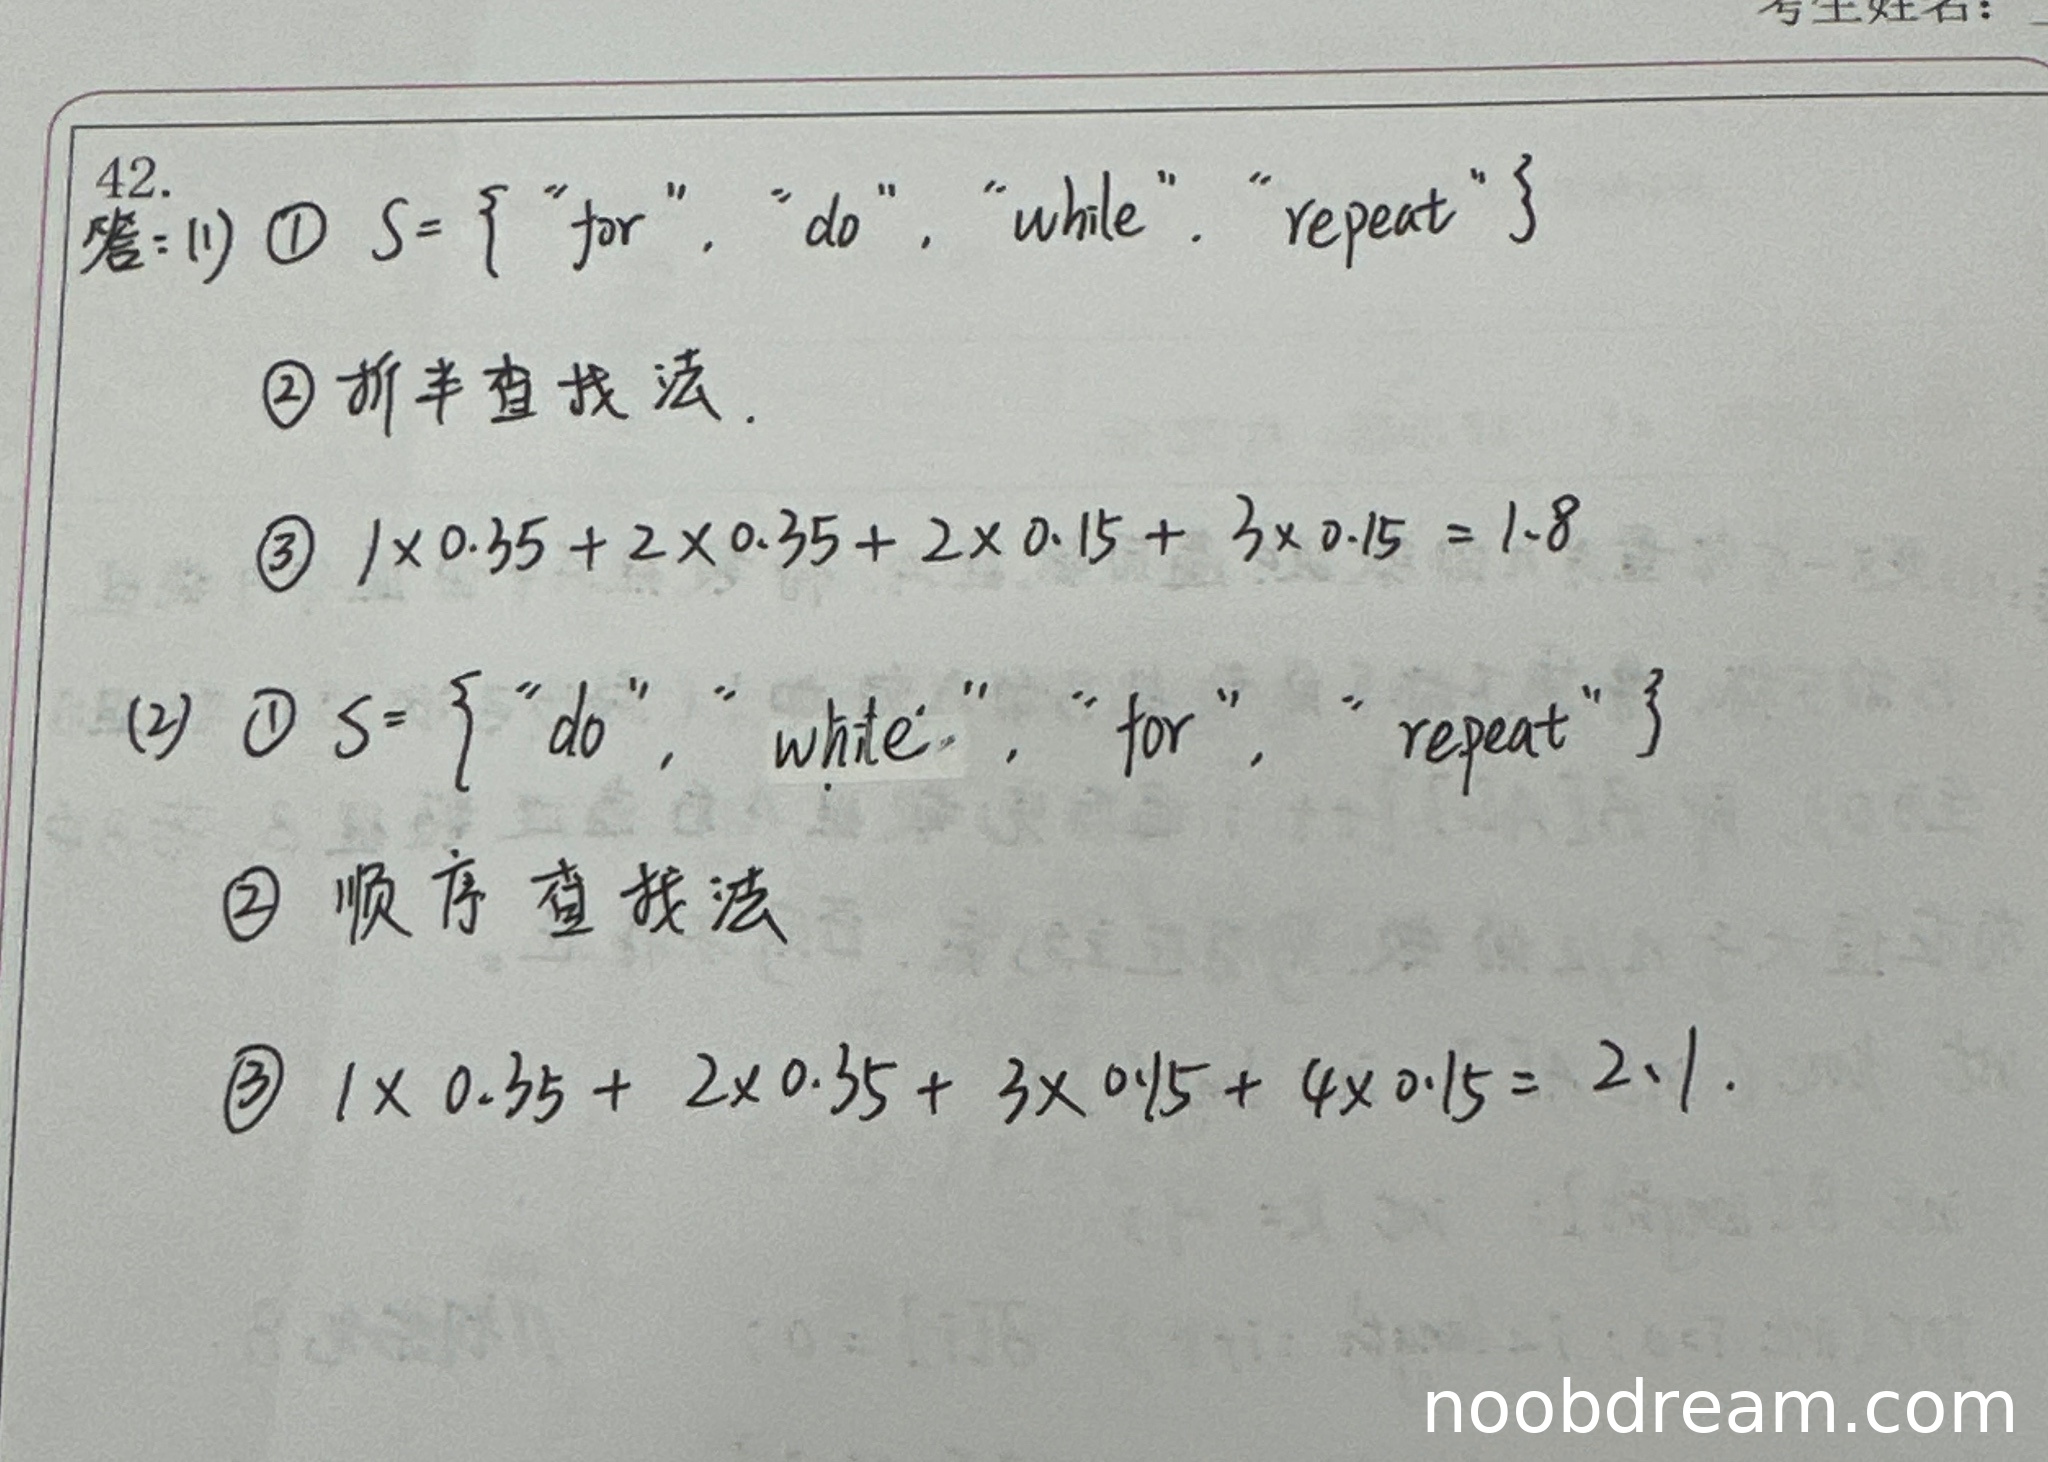 考生姓名：
42.
答：(1) ① S = { "for", "do", "while", "repeat" }
② 折半查找法.
③ 1×0.35 + 2×0.35 + 2×0.15 + 3×0.15 = 1.8
(2) ① S = { "do", "while", "for", "repeat" }
② 顺序查找法
③ 1×0.35 + 2×0.35 + 3×0.15 + 4×0.15 = 2.1.
noobdream.com